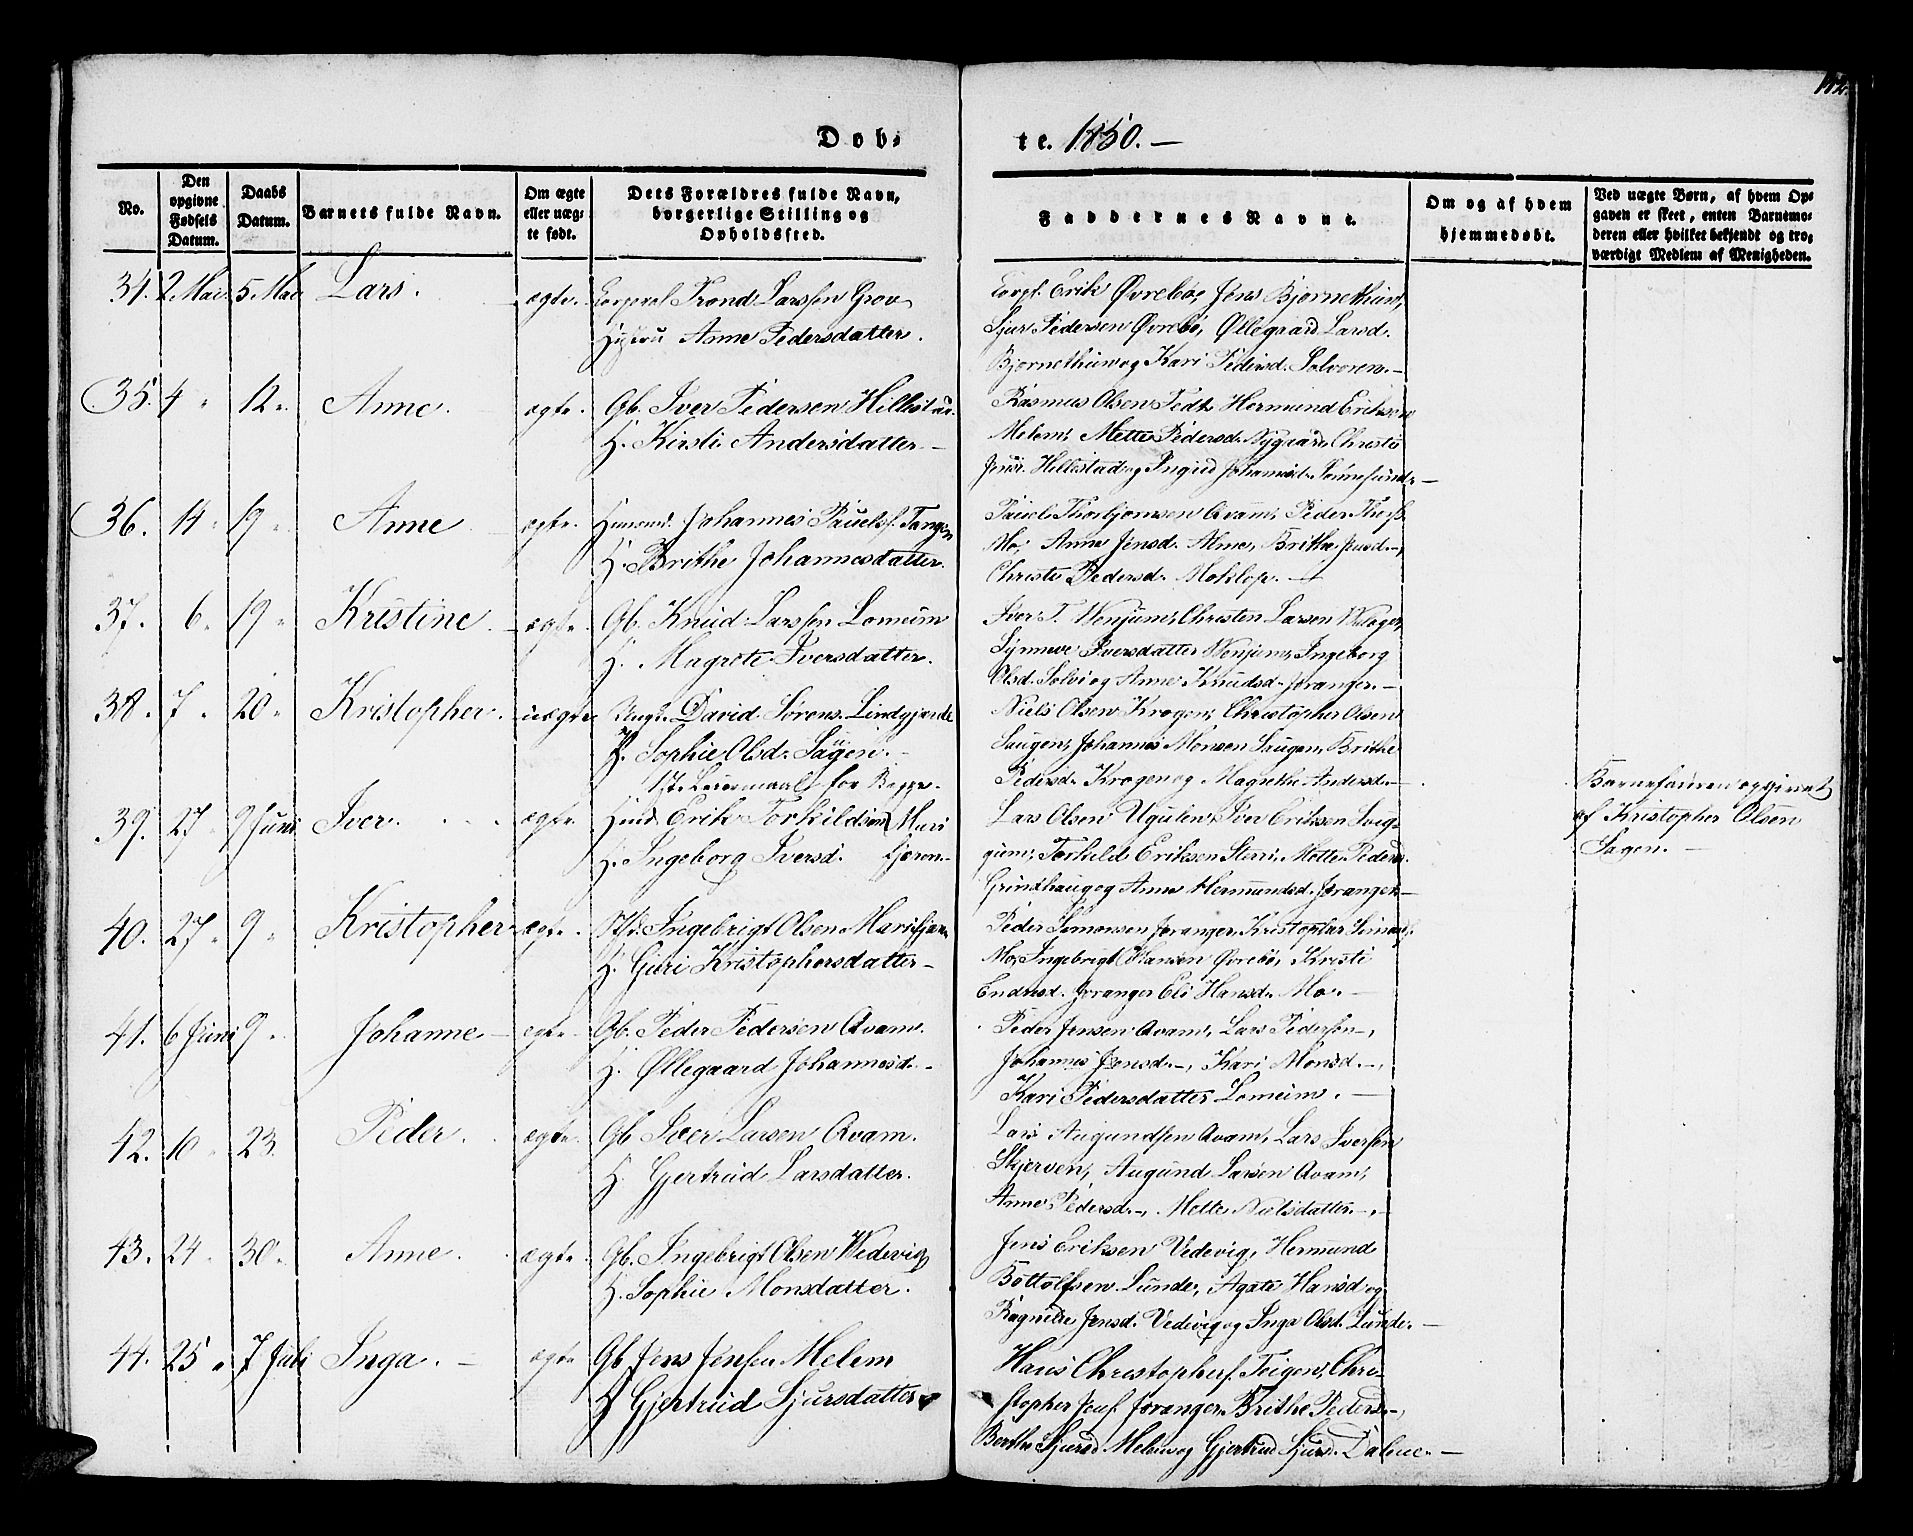 112.
Døb-
te. 1850. —
No.
Den opgivne Fødsels Datum.
Daabs Datum.
Barnets fulde Navn.
Om ægte eller uæg- te født.
Dets Forældres fulde Navn, borgerlige Stilling og Opholdssted.
Faddernes Navne.
Om og af hvem hjemmedøbt.
Ved uægte Børn, af hvem Op- gaven er skeet, enten Barnemo- deren eller hvilket bekjendt og tro- værdigt Medlem af Menigheden.
34. 2 Mai 5 Mai Lars. ægte. Corporal Trond Larssen Grov
Hustru Anne Pedersdatter.
Corpl. Erik Øvrebø, Jens Bjørnethun,
Sjur Pedersen Øvrebø, Øllegaard Larsd.
Bjørnethun og Kari Pedersd. Solvoren. —
35. 4 " 12 " Anne. ægte. Gb. Iver Pedersen Hillestad.
H. Kirsti Andersdatter —
Rasmus Olsen Fedt, Hermund Eriksen
Melem, Mette Pedersd. Nygaard, Christi
Jensd. Hillestad og Ingrid Johannesd.
36. 14 " 19 " Anne ægte. Johannes Pauels. Tangen
H. Brithe Johannesdatter.
Pauel Thorbjønsen Qvam, Peder
Mo, Anne Jensd. Alme, Brithe Jensd. —,
Christi Pedersd. Moklop. —
37. 6 " 19 " Kristine. ægte. Gb. Knud Larssen Lomeim
H. Magrete Iversdatter.
Iver T. Wenjum, Christen Larsen
Synneve Iversdatter Wenjum, Ingeborg
Olsd. Solvi og Anne Knudsd. Joranger. —
38. 7 " 20 " Kristopher. uægte Ungk. David Sørens. Lindgjerde
P. Sophie Olsd. Sagen. —
1ste Leiermaal for Begge.
Niels Olsen Krogen, Christopher Olsen
Saugen, Johannes Monsen Saugen, Brithe
Pedersd. Krogen og Magrethe Andersd. —
Barnefaderen opgivet
af Kristopher Olsen
Sagen. —
39. 27 " 9 Juni Iver. ægte. Huusmd. Erik Torkildsen Mari
H. Ingeborg Iversd. fjæren —
Lars Olsen Ugulen, Iver Eriksen Svig-
gum, Torkild Eriksen Steri, Mette Peders.
Grindhaug og Anne Hermundsd. Joranger —
40. 27 " 9 " Kristopher ægte. Ingebrigt Olsen Marifjær.
H. Guri Kristophersdatter —
Peder Simonsen Joranger, Kristopher Simons.
Mo, Ingebrigt Hansen Øvrebø, Kristi
Endresd. Joranger Eli Hansd. Mo. —
41. 6 Juni 9 " Johanne — ægte. Gb. Peder Pedersen Qvam.
H. Øllegaard Johannesd. —
Peder Jensen Qvam, Lars Pedersen —,
Johannes Jensd. —, Kari Monsd. —,
Kari Pedersdatter Lomeim. —
42. 10 " 23. Peder. ægte. Gb Iver Larsen Qvam.
H. Gjertrud Larsdatter.
Lars Augundsen Qvam, Lars Iversen
Skjerven, Augund Larsen Qvam,
Anne Pedersd. —, Mette Nielsdatter —, —
43. 24 " 30 " Anne. ægte. Gb. Ingebrigt Olsen Wedevig
H. Sophie Monsdatter.
Jens Eriksen Vedevig, Hermund
Bottolfsen Lunde, Agate Hansd og
Ragnilde Jensd. Vedevig og Inga Olsd. Lunde. —
44. 25 " 7 Juli Inga. — ægte Gb Jens Jensen Melem
H Gjertrud Sjursdatter
Hans Christophers. Teigen, Chri-
stopher Jens. Joranger, Brithe Peders. —,
Berthe Sjursd Melem og Gjertrud Sjursd. Dalene. —